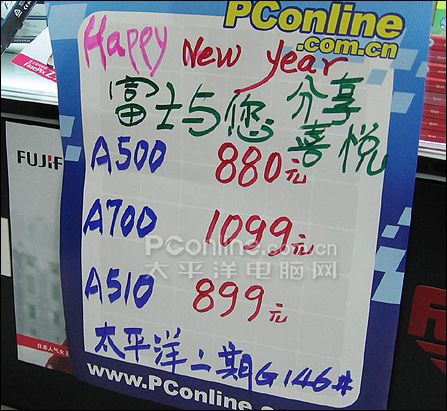 PConline
.com.cn
Happy New year
富士与您 分享
喜悦
A500 880元
A700 1099元
PConline.com.cn
太平洋电脑网
A510 899元
太平洋二期G146#
www.PConline
FUJIF